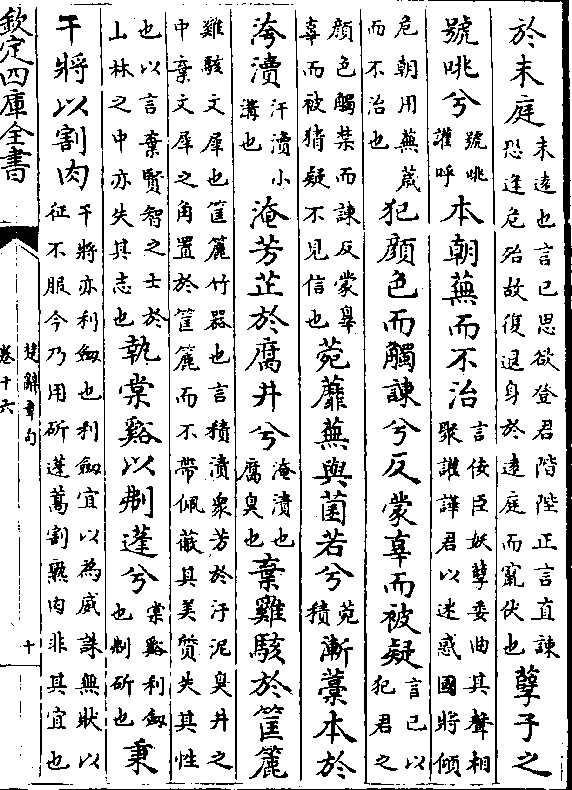 於末庭末遠也言已思欲登君階陛正言直諫恐逢危殆故復退身於遠庭而竄伏也孽子之
號咷兮號咷讙呼本朝蕪而不治言佞臣妖孽委曲其聲相聚讙譁君以迷惑國將傾
危朝用蕪薉而不治也犯顔色而觸諫兮反蒙辜而被疑言已以犯君之
顔色觸禁而諫反蒙辠辜而被猜疑不見信也菀蘼蕪與菌若兮菀積漸藁本於
洿瀆汙瀆小溝也淹芳芷於腐井兮淹漬也腐臭也棄雞駭於筐簏
雞駭文犀也筐簏竹器也言積漬衆芳於汙泥臭井之中棄文犀之角置於筐簏而不帶佩蔽其美質失其性
也以言棄賢智之士於山林之中亦失其志也執棠谿以刜蓬兮棠谿利劔也刜斫也秉
干將以割肉干將亦利劔也利劔宜以為威誅無狀以征不服今乃用斫蓬蒿割熟肉非其宜也
欽定四庫全書
楚辭章句
卷十六
十